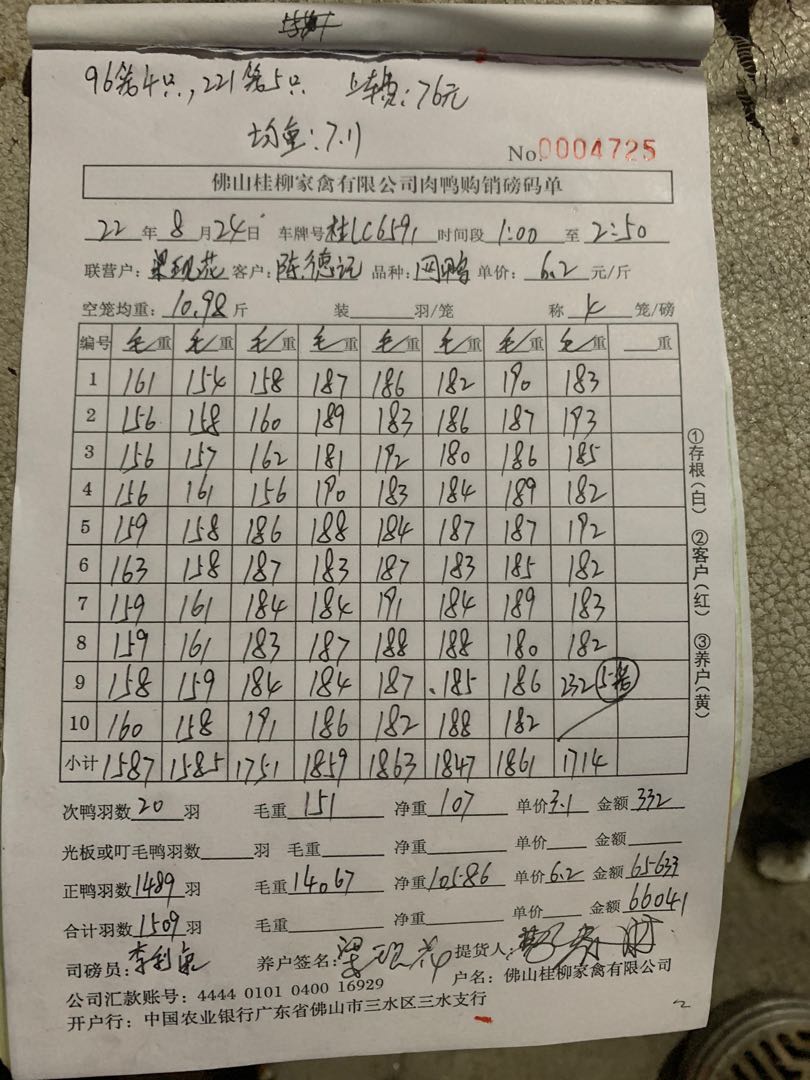 96笼4只,221笼5只 上车费:76元
均重:7.11
No.0004725
佛山桂柳家禽有限公司肉鸭购销磅码单
22年8月24日 车牌号桂LC6591 时间段1:00至2:50
联营户:梁现花 客户:陈德记 品种:网鸭 单价:6.2元/斤
空笼均重:10.98斤 装 羽/笼 称4笼/磅
编号 毛重 毛重 毛重 毛重 毛重 毛重 毛重 毛重 重
1 161 154 158 187 186 182 190 183
2 156 158 160 189 183 186 187 193
3 156 157 162 181 192 180 186 185
4 156 161 156 190 183 184 189 182
5 159 158 186 188 184 187 187 192
6 163 158 187 183 187 183 185 182
7 159 161 184 184 191 184 189 183
8 159 161 183 187 188 188 180 182
9 158 159 184 184 187 185 186 232 5笼
10 160 158 191 186 182 188 182
小计 1587 1585 1751 1859 1863 1847 1861 1714
①存根(白) ②客户(红) ③养户(黄)
次鸭羽数20羽 毛重151 净重107 单价3.1 金额332
光板或叮毛鸭羽数 羽 毛重 净重 单价 金额
正鸭羽数1489羽 毛重14067 净重10586 单价6.2 金额65633
合计羽数1509羽 毛重 净重 单价 金额66041
司磅员: 养户签名:梁现花 提货人:
公司汇款账号:4444 0101 0400 16929 户名:佛山桂柳家禽有限公司
开户行:中国农业银行广东省佛山市三水区三水支行